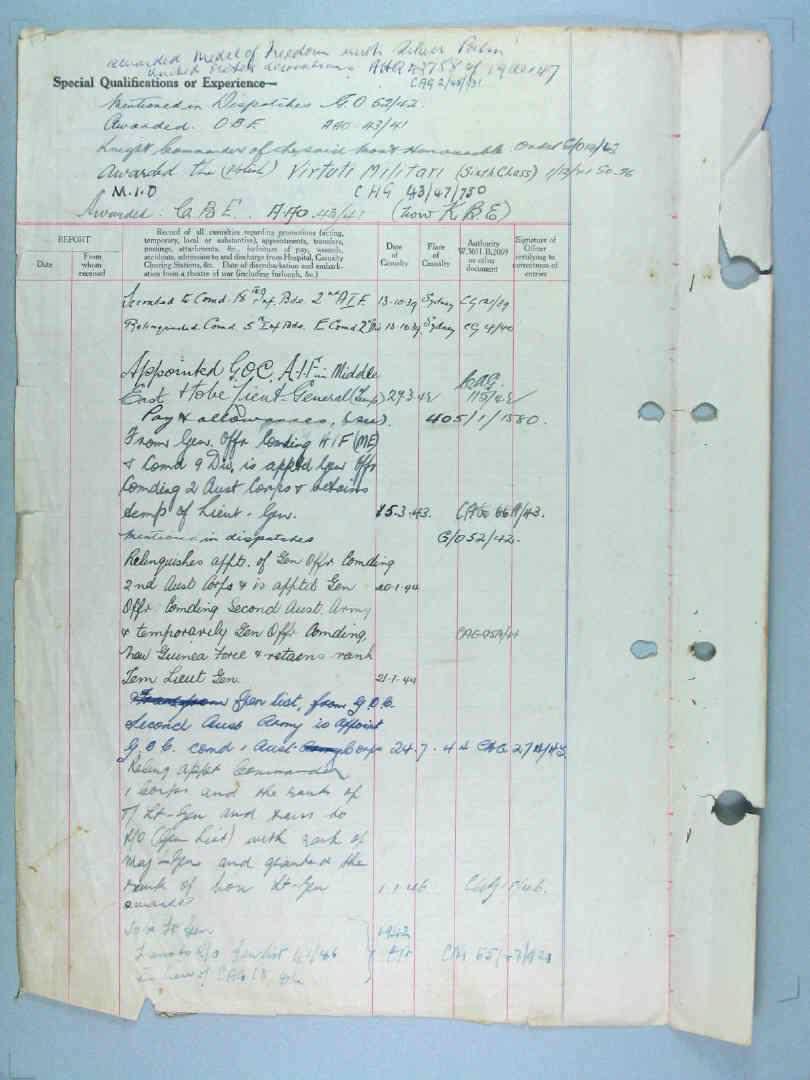 awarded Medal of Freedom with Silver Palm
United States decorations AHQ 42758 of 19
CAG 2/48/131
Special Qualifications or Experience—
Mentioned in Dispatches G.O 52/42.
Awarded. O B E. AAO. 43/41
Knight Commander of the said Most Honourable Order
Awarded the (Polish) Virtuti Militari (Sixth Class)
M.I.D CAG 43/47/750
Awarded. C.B.E. AAO. 43/41 (now K.B.E)
REPORT
Date
From whom received
Record of all casualties regarding promotions (acting,
temporary, local or substantive), appointments, transfers,
postings, attachments, &c., forfeiture of pay, wounds,
accidents, admission to and discharge from Hospital, Casualty
Clearing Stations, &c. Date of disembarkation and embark-
ation from a theatre of war (including furlough, &c.)
Date of Casualty
Place of Casualty
Authority W.3011 B.2069 or other document
Signature of Officer certifying to correctness of entries
Seconded to Comd. Inf. Bde. 2nd A.I.F. 13-10-39 Sydney
Relinquished Comd 5th Inf Bde. E Comd 13-10-39 Sydney
Appointed G.O.C. A.I.F. in Middle
East & to be Lieut-General (Temp) 29.3.42 115/42
Pay & allowances, 405/1/1580.
From Gen. Offr Comding A I F (ME)
& Comd 9 Div, is apptd Gen Offr
Comding 2 Aust Corps & retains
temp of Lieut-Gen. 15.3.43. CAG 66A/43.
Mentioned in dispatches G/O 52/42.
Relinquishes appt. of Gen Offr Comding
2nd Aust Corps & is apptd Gen 20-1-44
Offr Comding Second Aust Army
& temporarily Gen Offr Comding,
New Guinea Force & retains rank
Tem Lieut Gen. 21-1-44
Gen list, from G.O.C.
Second Aust Army is Appoint
G.O.C. comd 1 Aust Army Corps 24.7.44
Relinq appt Commander
1 Corps and the rank of
T/ Lt-Gen and trans to
R/O (Gen List) with rank of
Maj-Gen and granted the
rank of hon Lt-Gen 1.1.46
awards